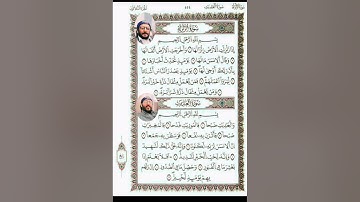 سورة الزلزلة
بسم الله الرحمن الرحيم
إذا زلزلت الأرض زلزالها وأخرجت الأرض أثقالها
وقال الإنسان ما لها يومئذ تحدث أخبارها
بأن ربك أوحى لها يومئذ يصدر الناس أشتاتا
ليروا أعمالهم فمن يعمل مثقال ذرة خيرا يره
ومن يعمل مثقال ذرة شرا يره
سورة العاديات
بسم الله الرحمن الرحيم
والعاديات ضبحا فالموريات قدحا فالمغيرات
صبحا فأثرن به نقعا فوسطن به جمعا
إن الإنسان لربه لكنود وإنه على ذلك لشهيد
وإنه لحب الخير لشديد أفلا يعلم إذا
بعثر ما في القبور وحصل ما في الصدور إن ربهم
بهم يومئذ لخبير